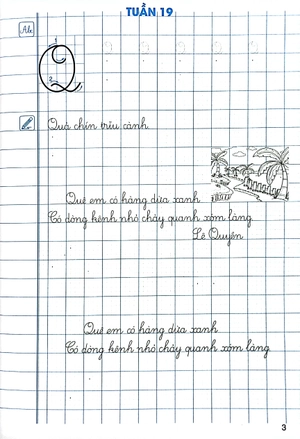 TUẦN 19
Ab
1
Q
2
Quả chín trĩu cành
Quê em có hàng dừa xanh
Có dòng kênh nhỏ chảy quanh xóm làng.
Lê Quyên
Quê em có hàng dừa xanh
Có dòng kênh nhỏ chảy quanh xóm làng
3